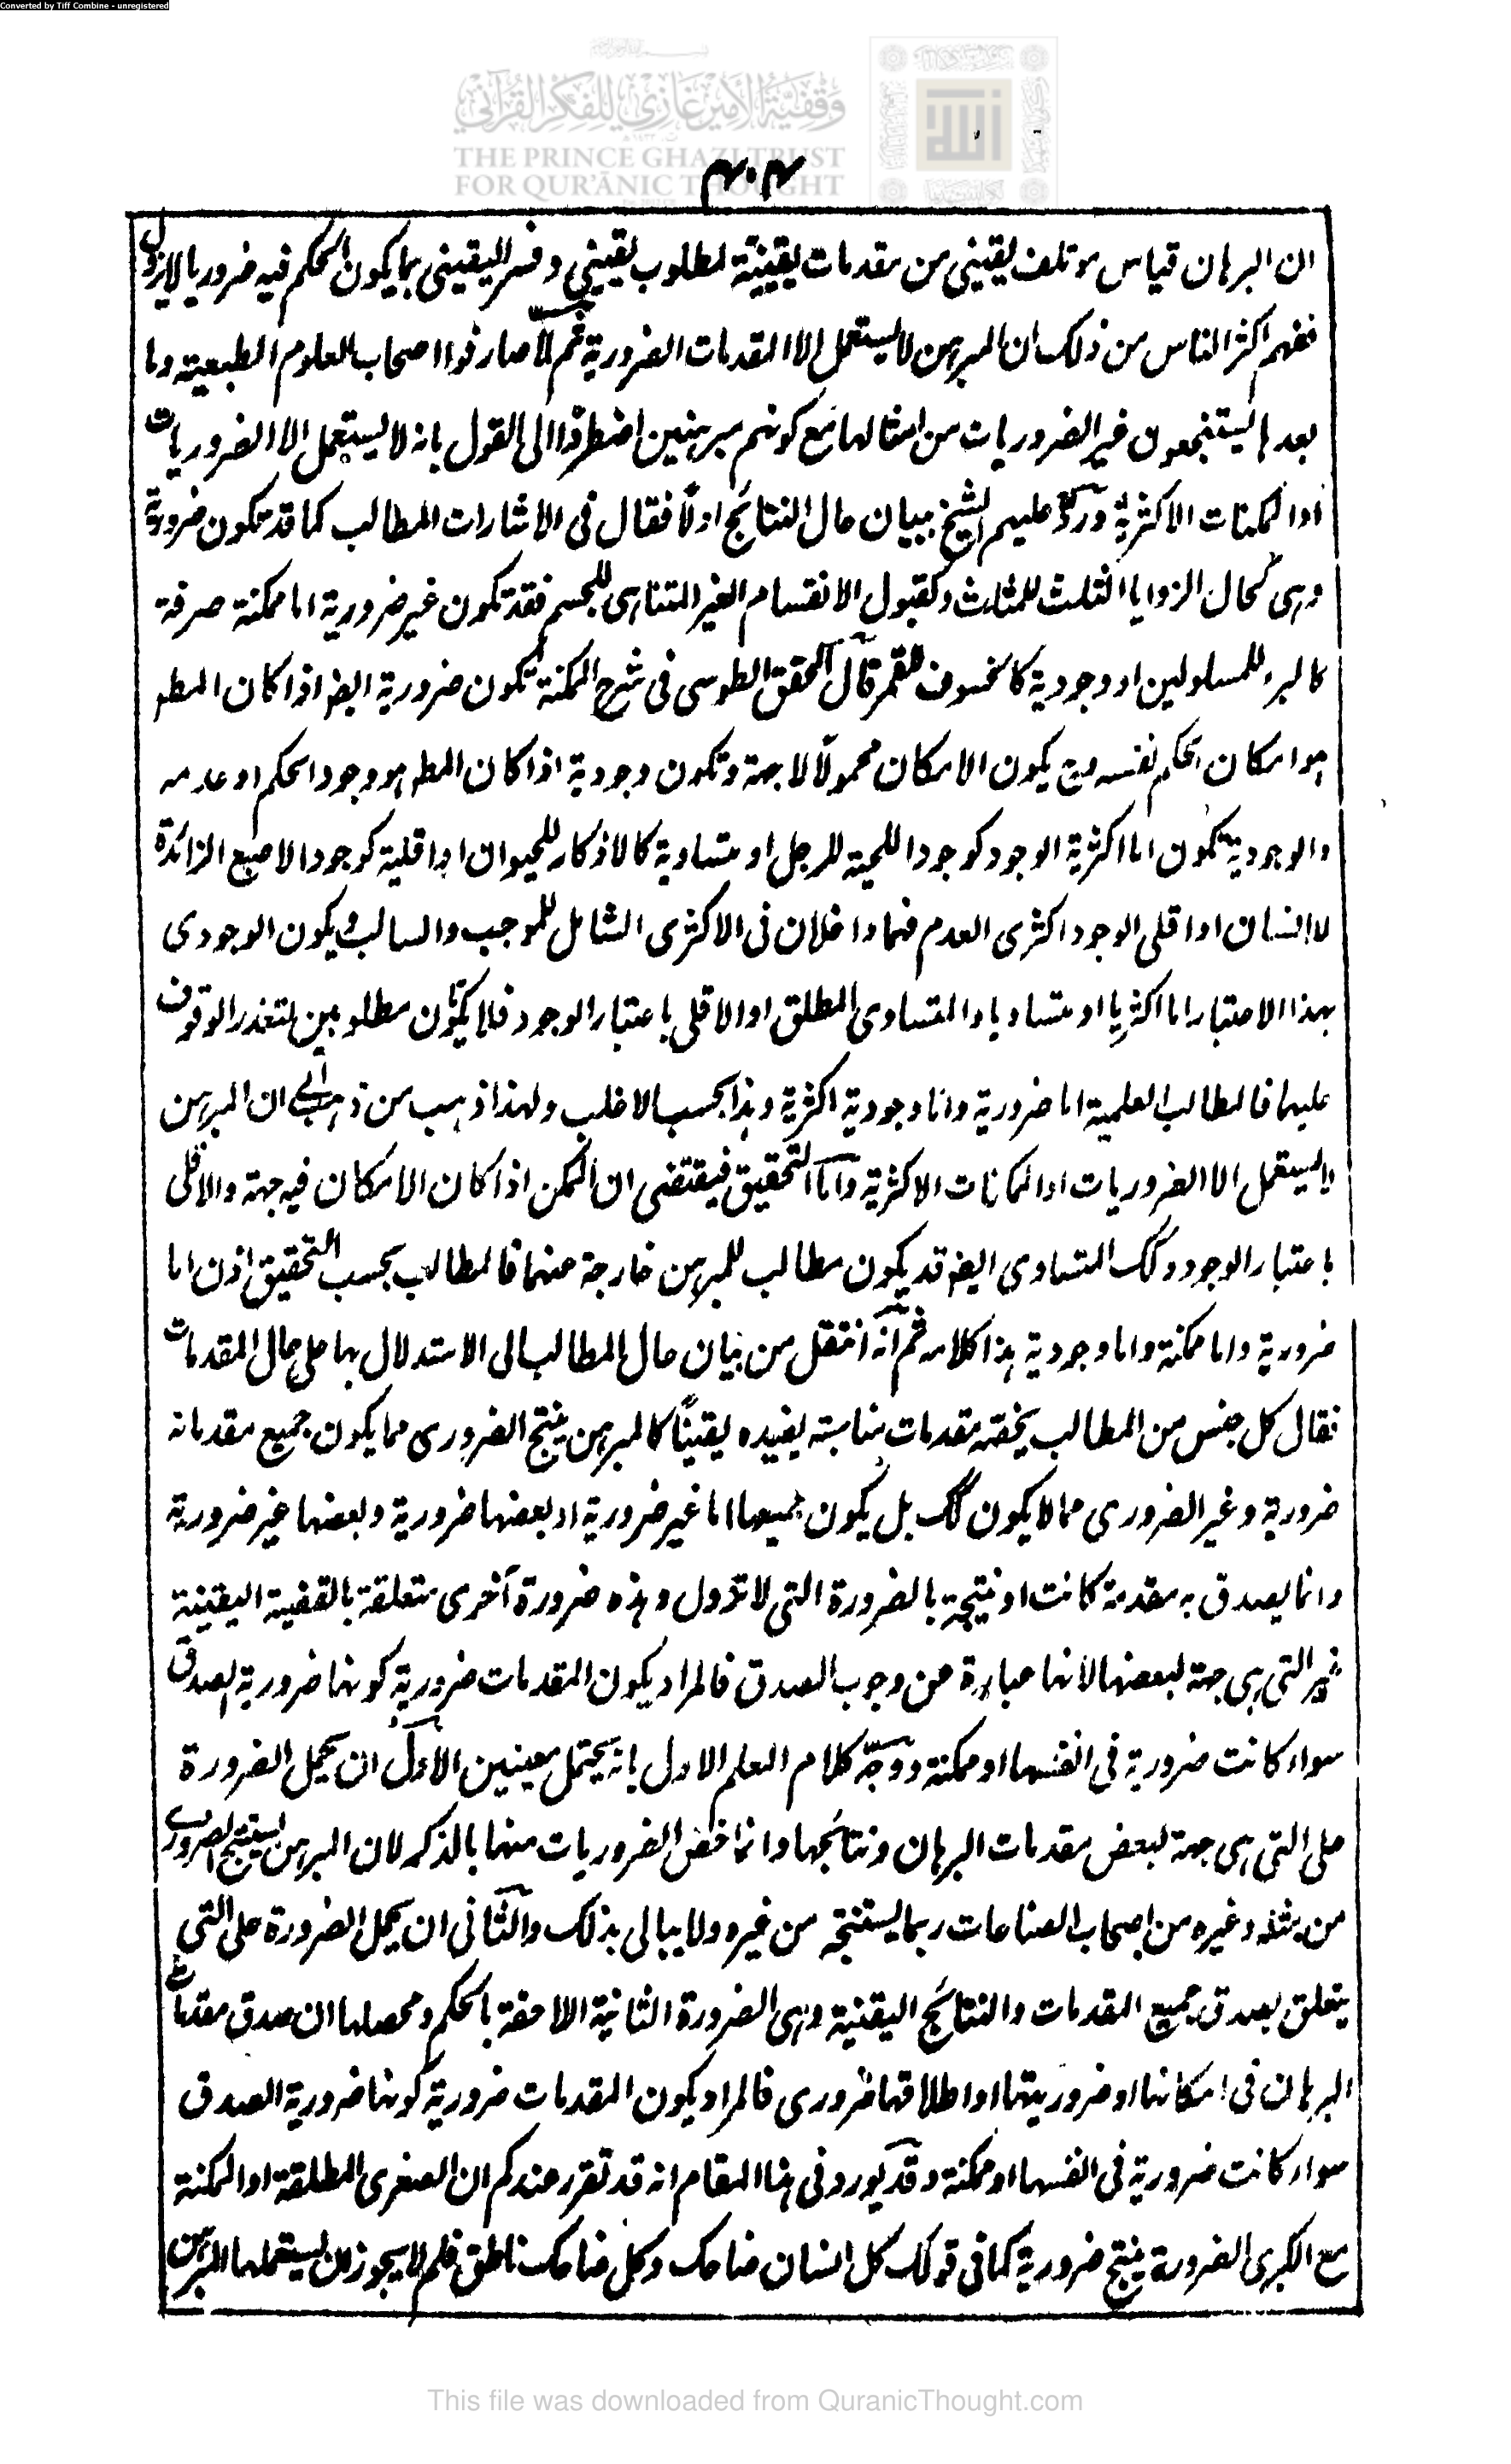 Converted by Tiff Combine - unregistered
وقفية الأمير غازي للفكر القرآني
THE PRINCE GHAZI TRUST
FOR QUR'ĀNIC THOUGHT
٣٠٤
ان البرهان قياس موتلف يقيني من مقدمات يقينية لمطلوب يقيني وفسر اليقيني بما يكون الحكم فيه ضروريا لايزول
ففهم اكثر الناس من ذلك ان المبرهن لا يستعمل الا المقدمات الضرورية ثم لما صادفوا اصحاب العلوم الطبعية وما
بعدها يستنتجون غير الضروريات من امثالها مع كونهم مبرهنين اضطروا الى القول بانه لا يستعمل الا الضروريات
او الممكنات الاكثرية ورد عليهم الشيخ ببيان حال النتائج اولًا فقال فى الاشارات المطالب كما قد تكون ضرورية
وهى كحال الزوايا الثلث للمثلث وكقبول الانقسام الغير المتناهى للجسم فقد تكون غير ضرورية اما ممكنة صرفة
كالبرء للمسلولين او وجودية كالخسوف للقمر قال المحقق الطوسى فى شرح الممكنة تكون ضرورية ايضا اذا كان المطلـ
هو امكان الحكم نفسه وح يكون الامكان محمولًا لا جهة وتكون وجودية اذا كان المطلـ هو وجود الحكم او عدمه
والوجودية تكون اما اكثرية الوجود كوجود اللحية للرجل او متساوية كالاذكار للحيوان او اقلية كوجود الاصبع الزائدة
للانسان او اقلى الوجود اكثرى العدم فهما داخلان فى الاكثرى الشامل للموجب والسالب ويكون الوجودى
بهذا الاعتبار اما اكثريا او متساويا والمتساوى المطلق او الاقلى باعتبار الوجود فلا يكونان مطلوبين لتعذر الوقوف
عليهما فالمطالب العلمية اما ضرورية واما وجودية اكثرية وهذا بحسب الاغلب ولهذا ذهب من ذهب الى ان المبرهن
لا يستعمل الا الضروريات او الممكنات الاكثرية واما التحقيق فيقتضى ان الممكن اذا كان الامكان فيه جهة والاقلى
باعتبار الوجود وكك المتساوى ايضا قد يكون مطالب للمبرهن خارجة عنهما فالمطالب بحسب التحقيق اذن اما
ضرورية واما ممكنة واما وجودية هذا كلامه ثم انه انتقل من بيان حال المطالب الى الاستدلال بها على حال المقدمات
فقال كل جنس من المطالب يخصّه مقدمات مناسبة يفيده يقينًا كالمبرهن ينتج الضرورى مما يكون جميع مقدماته
ضرورية وغير الضرورى مما لا يكون كك بل يكون جميعها اما غير ضرورية او بعضها ضرورية وبعضها غير ضرورية
وانما يصدق به مقدمة كانت او نتيجة بالضرورة التى لا تزول وهذه ضرورة آخرى متعلقة بالقضية اليقينية
غير التى هى جهة لبعضها لانها عبارة عن وجوب الصدق فالمراد يكون المقدمات ضرورية كونها ضرورية الصدق
سواء كانت ضرورية فى انفسها او ممكنة ووجّه كلام المعلم الاول بانه يحتمل معنيين الاول ان يحمل الضرورة
على التى هى جهة لبعض مقدمات البرهان ونتائجها وانما خص الضروريات منها بالذكر لان المبرهن يستنتج الضرورى
من مثله وغيره من اصحاب الصناعات ربما يستنتجه من غيره ولا يبالى بذلك والثانى ان يحمل الضرورة على التى
يتعلق بصدق جميع المقدمات والنتائج اليقنية وهى الضرورة الثانية اللاحقة بالحكم ومحصلها ان صدق مقدمات
البرهان فى امكانها او ضروريتها او اطلاقها ضرورى فالمراد يكون المقدمات ضرورية كونها ضرورية الصدق
سواء كانت ضرورية فى انفسها او ممكنة وقد يورد فى هذا المقام انه قد تقرر عندكم ان الصغرى المطلقة او الممكنة
مع الكبرى الضرورة ينتج ضرورية كما فى قولك كل انسان ضاحك وكل ضاحك ناطق فلم لا يجوز ان يستعملها المبرهن
This file was downloaded from QuranicThought.com